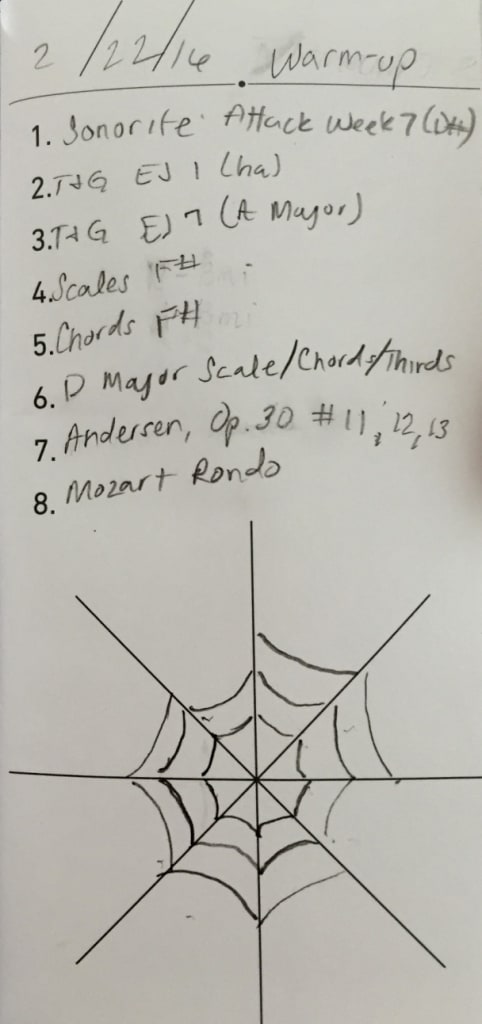 2/22/16 Warm-up
1. Sonorite Attack Week 7 (D#)
2. T+G EJ 1 (ha)
3. T+G EJ 7 (A Major)
4. Scales F#
5. Chords F#
6. D Major Scale/Chords/Thirds
7. Andersen, Op. 30 #11, 12, 13
8. Mozart Rondo